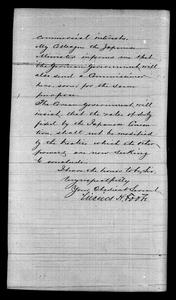 commercial interests.
My Colleague the Japanese
Minister informs me that
the German Government, will
also send a Commissioner
here, soon for the same
purpose.
The Corean Government, will
insist, that the rates of duty
fixed by the Japanese Conven
tion, shall not be modified
by the treaties which the other
powers, are now seeking
to conclude.
I have the honor to be, Sir,
Very respectfully
Your Obedient Servant
Lucius H. Foote